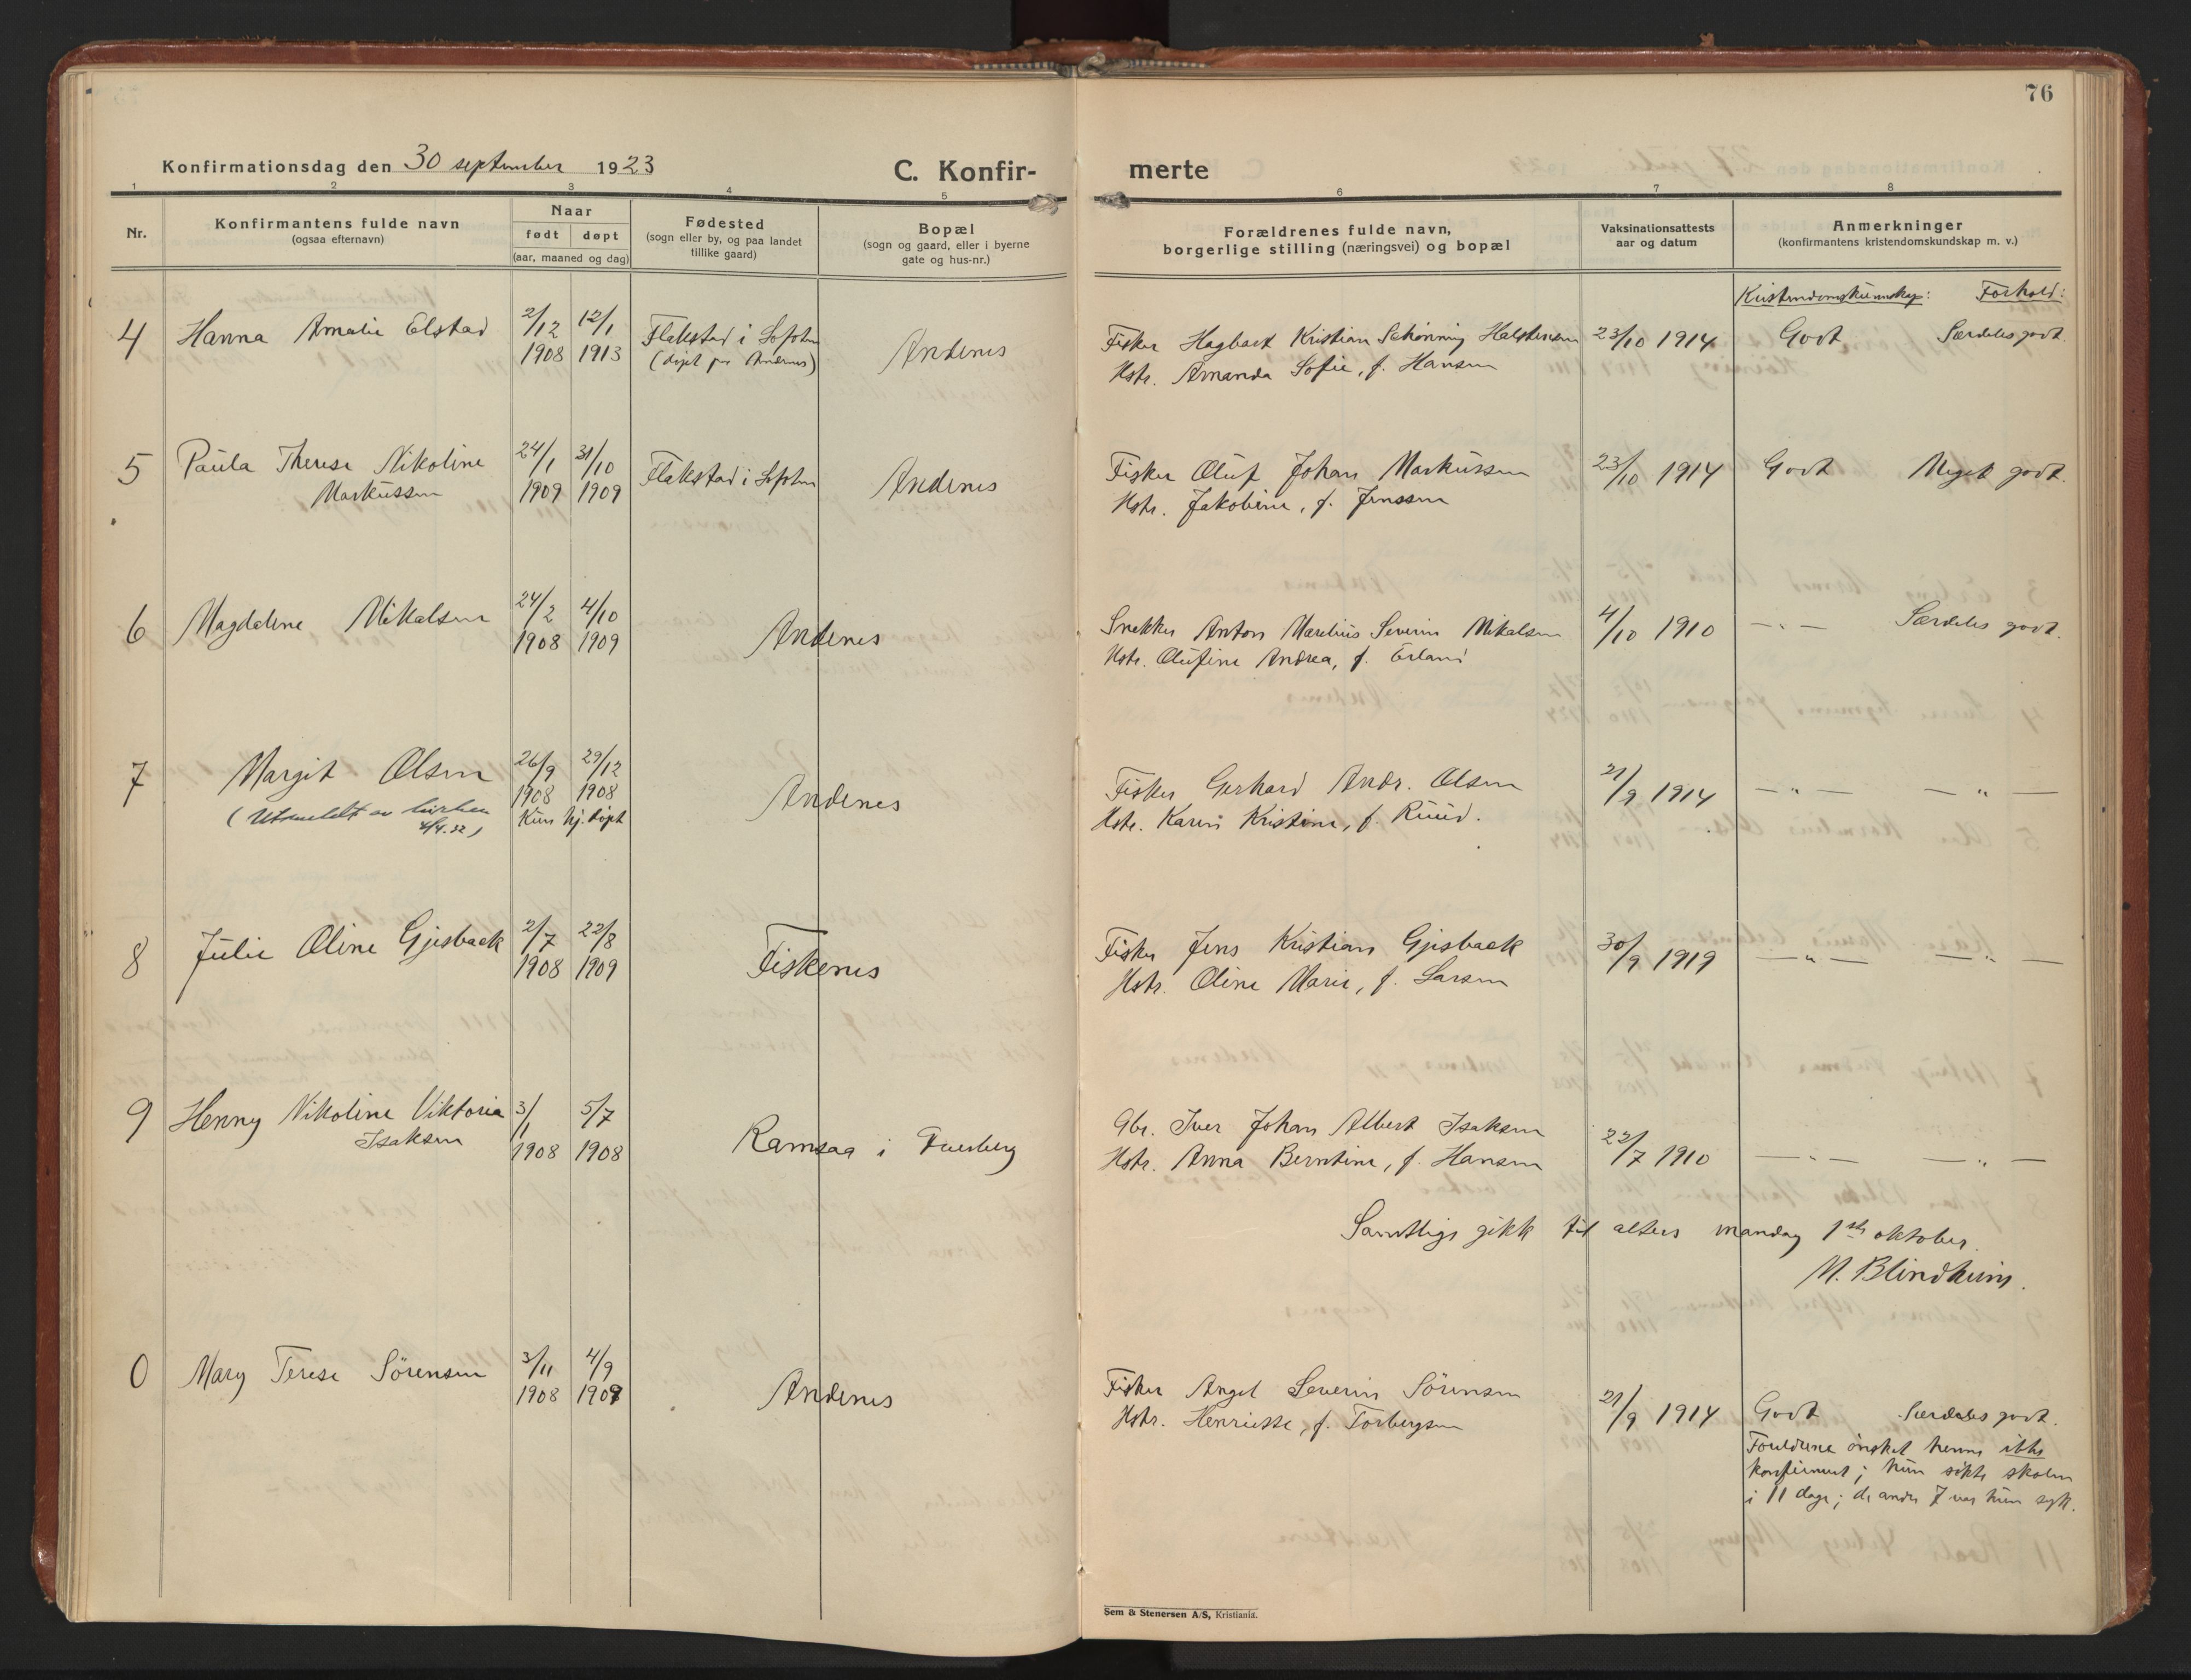 76
Konfirmationsdag den 30 september 1923
C. Konfir-
merte
1 2 3 4 5 6 7 8
Nr.
Konfirmantens fulde navn
(ogsaa efternavn)
Naar
født døpt
(aar, maaned og dag)
Fødested
(sogn eller by, og paa landet
tillike gaard)
Bopæl
(sogn og gaard, eller i byerne
gate og hus-nr.)
Forældrenes fulde navn,
borgerlige stilling (næringsvei) og bopæl
Vaksinationsattests
aar og datum
Anmerkninger
(konfirmantens kristendomskundskap m. v.)
Kristendomskunnskap: Forhold:
4 Hanna Amalie Elstad 2/12 1908 12/1 1913 Flakstad i Lofoten Andenes
(døpt paa Andenes)
Fisker Hagbart Kristian Schønning Halstensen 23/10 1914 Godt Særdeles godt.
Hstr. Amanda Sofie, f. Hansen
5 Paula Therese Nikoline 24/1 1909 31/10 1909 Flakstad i Lofoten Andenes
Markussen
Fisker Oluf Johan Markussen 23/10 1914 Godt Meget godt.
Hstr. Jakobine, f. Jenssen
6 Magdalene Mikalsen 24/2 1908 4/10 1909 Andenes
Snekker Anton Marelius Severin Mikalsen 4/10 1910 — " — Særdeles godt.
Hstr. Olufine Andrea, f. Erland
7 Margit Olsen 26/9 1908 29/12 1908 Andenes
(Utmeldt av kirken Kun hj. døpt
4/4.22)
Fisker Gerhard Andr. Olsen 21/9 1914 — " — — " —
Hstr. Karen Kristine, f. Ruud.
8 Julie Oline Gjisback 2/7 1908 22/8 1909 Fiskenes
Fisker Jens Kristian Gjisback 30/9 1919 — " — — " —
Hstr. Oline Marie, f. Larsen
9 Henny Nikoline Viktoria 3/1 1908 5/7 1908 Ramsaa i Dverberg
Isaksen
Gbr. Iver Johan Albert Isaksen 22/7 1910 — " — — " —
Hstr. Anna Berntine, f. Hansen
Samtlige gikk til alters mandag 1ste oktober.
M. Blindheim.
0 Mary Terese Sörensen 3/11 1908 4/9 1909 Andenes
Fisker Angel Severin Sörensen 21/9 1914 Godt Særdeles godt.
Hstr. Henriette, f. Torbergsen
Foreldrene ønsket henne ikke
konfirmert; hun søkte skolen
i 11 dage; de andre 7 var hun syk.
Sem & Stenersen A/S, Kristiania.